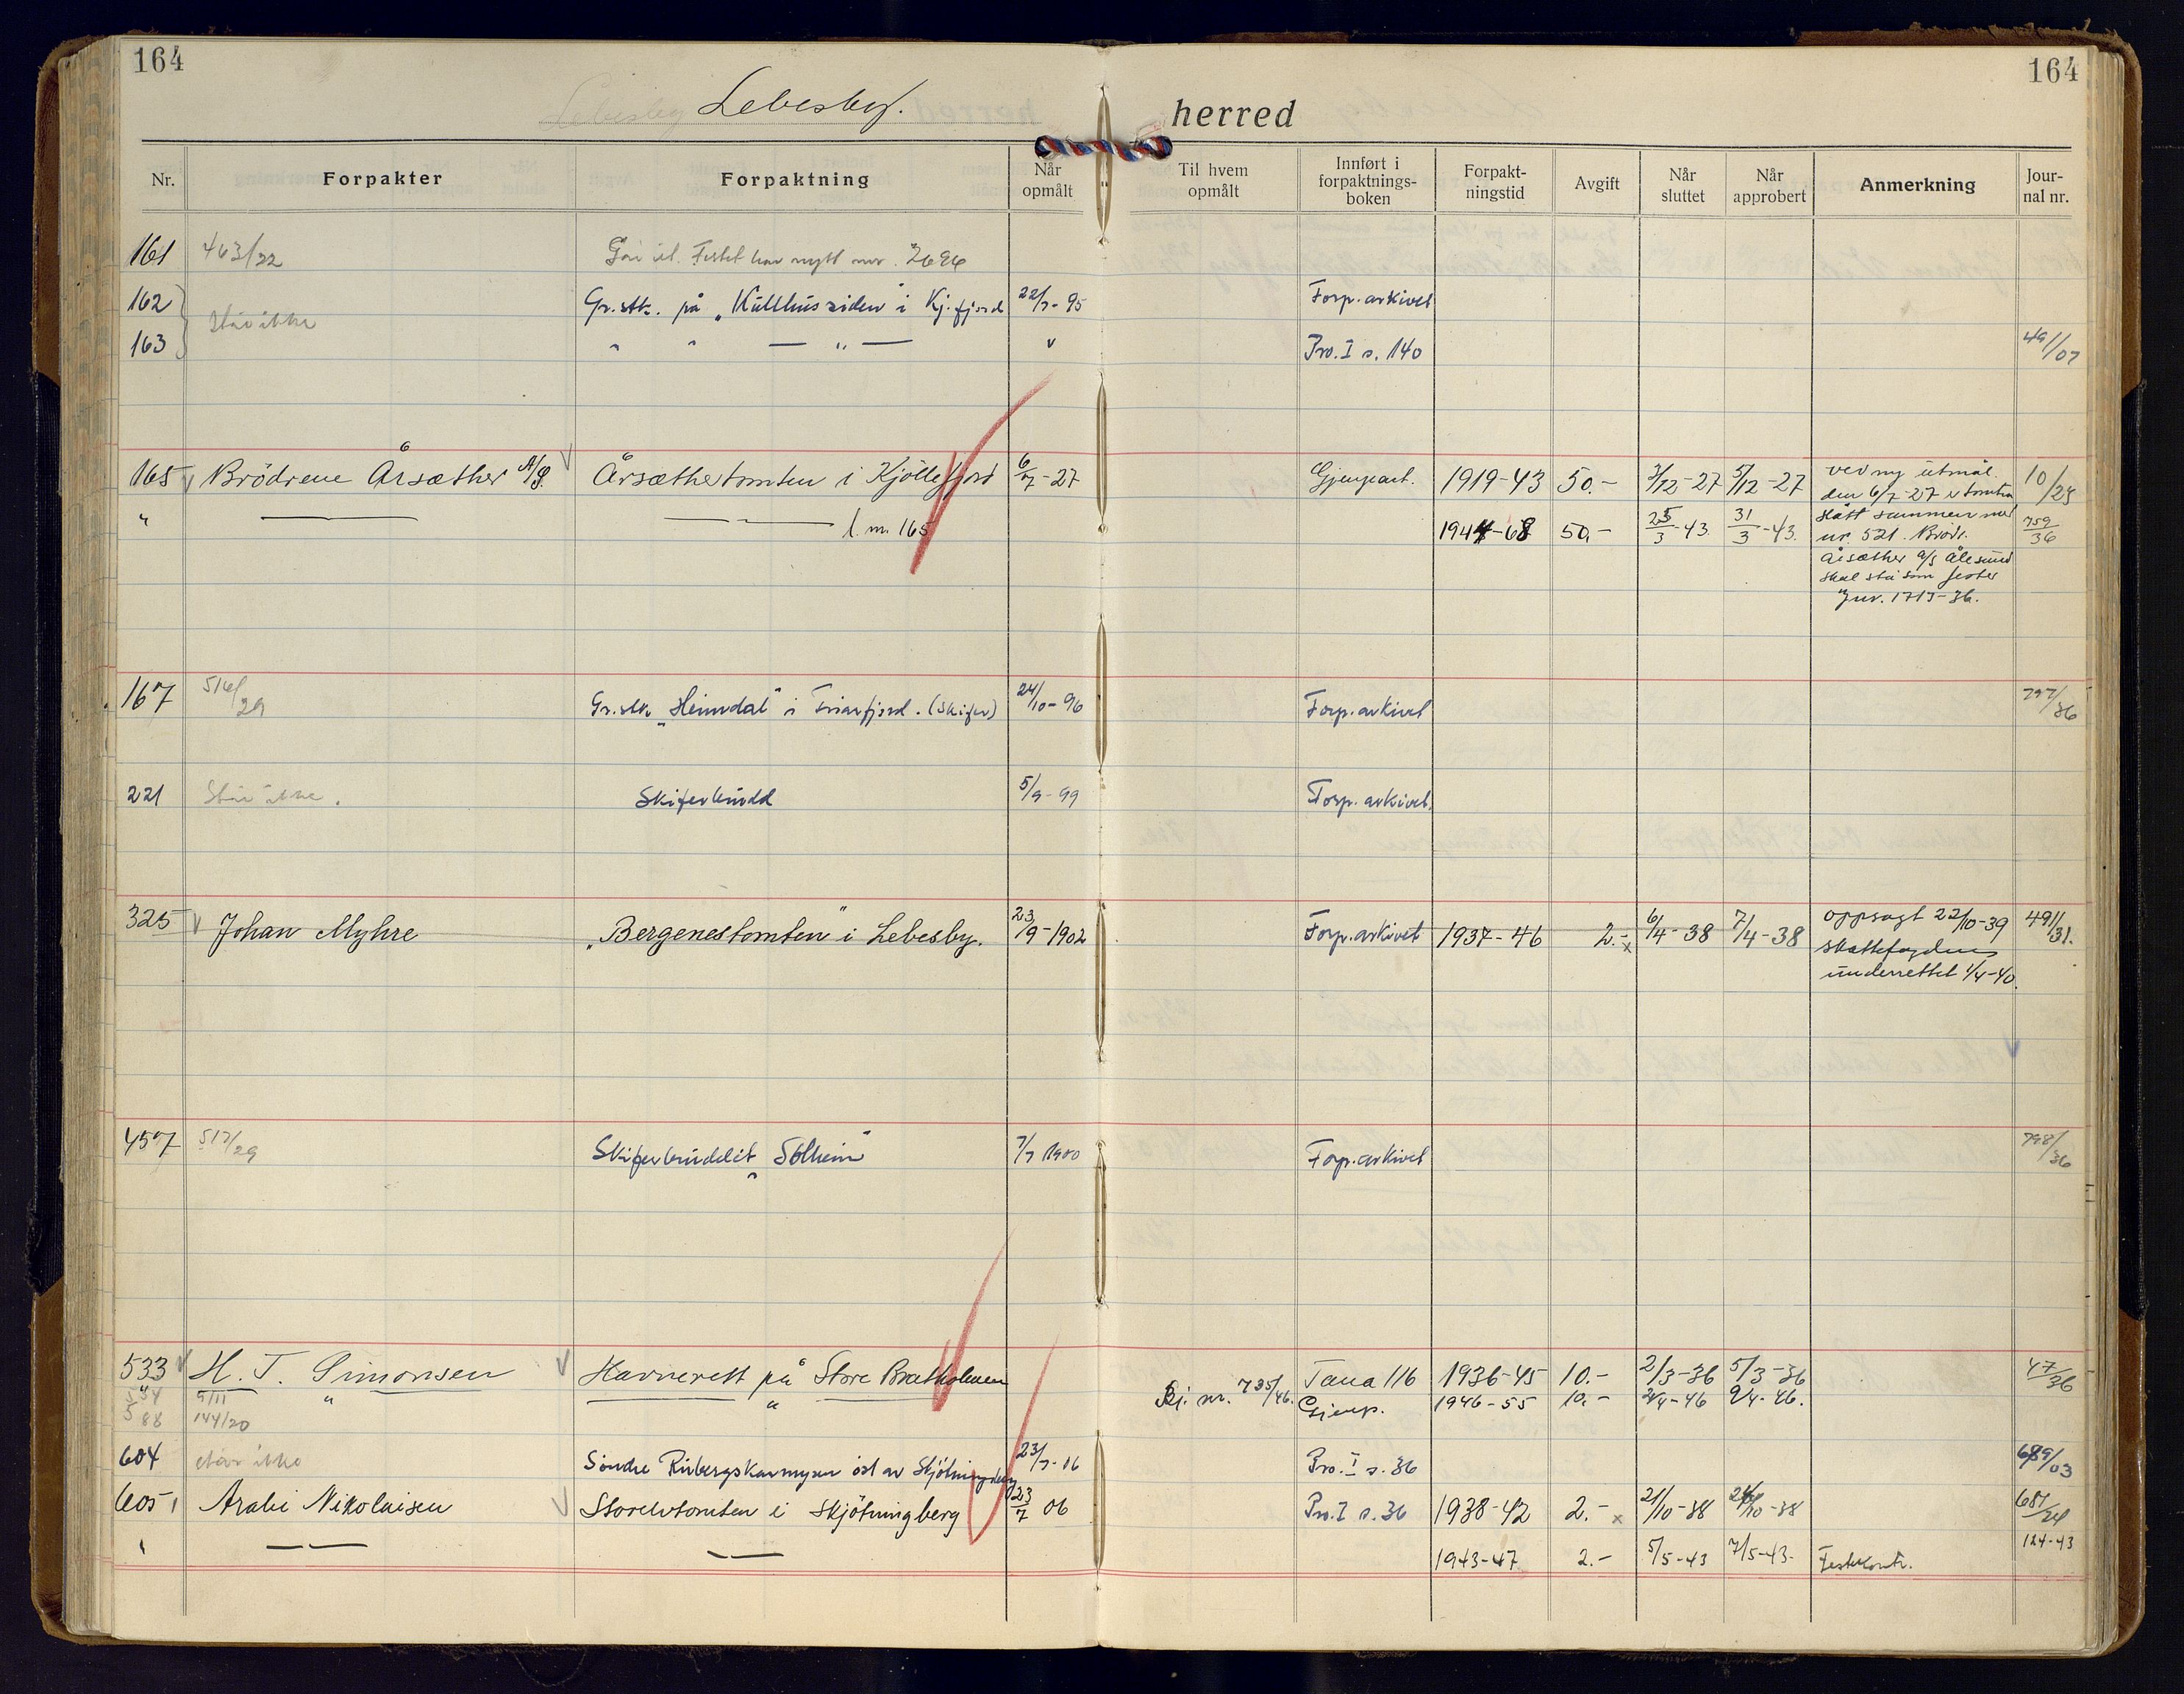 164
164
Lebesby Lebesby. herred
Nr. Forpakter Forpaktning Når opmålt Til hvem opmålt Innført i forpaktnings-boken Forpakt-ningstid Avgift Når sluttet Når approbert Anmerkning Jour-nal nr.
161 463/22 Går ut. Festet har nytt nr. 2696
162 Står ikke Gr.stk. på „Kulthussiden" i Kj.fjord 22/7-95 Forp.arkivet
163 " " — " — " Pro. I s. 140 491/07
165 Brödrene Årsæther A/S. Årsæthertomten i Kjöllefjord 6/7-27 Gjenpart. 1919-43 50.- 3/12-27 5/12-27 ved ny utmål. 10/28
den 6/7-27 er tomten
" — — l.nr. 165 1944-68 50.- 25/3-43. 31/3-43. slått sammen med 759/36
nr. 521. Brödr.
Årsæther a/s Ålesund
skal stå som fester
Jnr. 1713-36.
167 516/29 Gr.stk „Heimdal" i Friarfjord. (Skifer) 24/10-96 Forp.arkivet 797/36
221 Står ikke. Skiferbrudd 5/9-99 Forp.arkivet.
325 Johan Myhre „Bergenestomten" i Lebesby. 23/9-1902 Forp.arkivet 1937-46 2.- x 6/4-38 7/4-38 oppsagt 22/10-39 491/31.
Skattefogden
underrettet 1/4-40.
457 517/29 Skiferbruddet „Solheim" 7/7 1900 Forp.arkivet 798/36
533 H. J. Simonsen Havnerett på Store Bratholmen Tana 116 1936-45 10.- 2/3-36 5/3-36 47/36
534 5/11 " " Bj. nr. 735/46. Gjenp. 1946-55 10.- 2/4-46 9/4-46.
588 144/20
604 står ikke Söndre Risbergskarmyren öst av Skjötningberg 23/7-06 Pro. I s. 36 689/03
605 Arabi Nikolaisen Storelvtomten i Skjötningberg 23/7 06 Pro. I s. 36 1938-42 2.- x 21/10-38 24/10-38 681/24
" — — 1943-47 2.- 5/5-43 7/5-43. Festekontr. 124-43